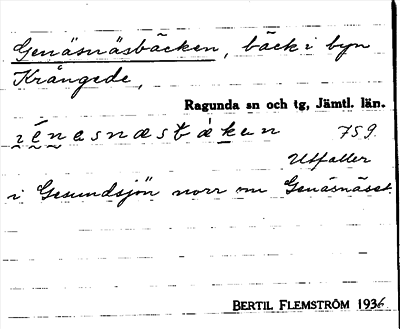 Genäsnäsbäcken, bäck i byn
Krångede,
Ragunda sn och tg, Jämtl. län.
759.
Utfaller
i Gesundsjön norr om Genäsnäset.
BERTIL FLEMSTRÖM 1936.